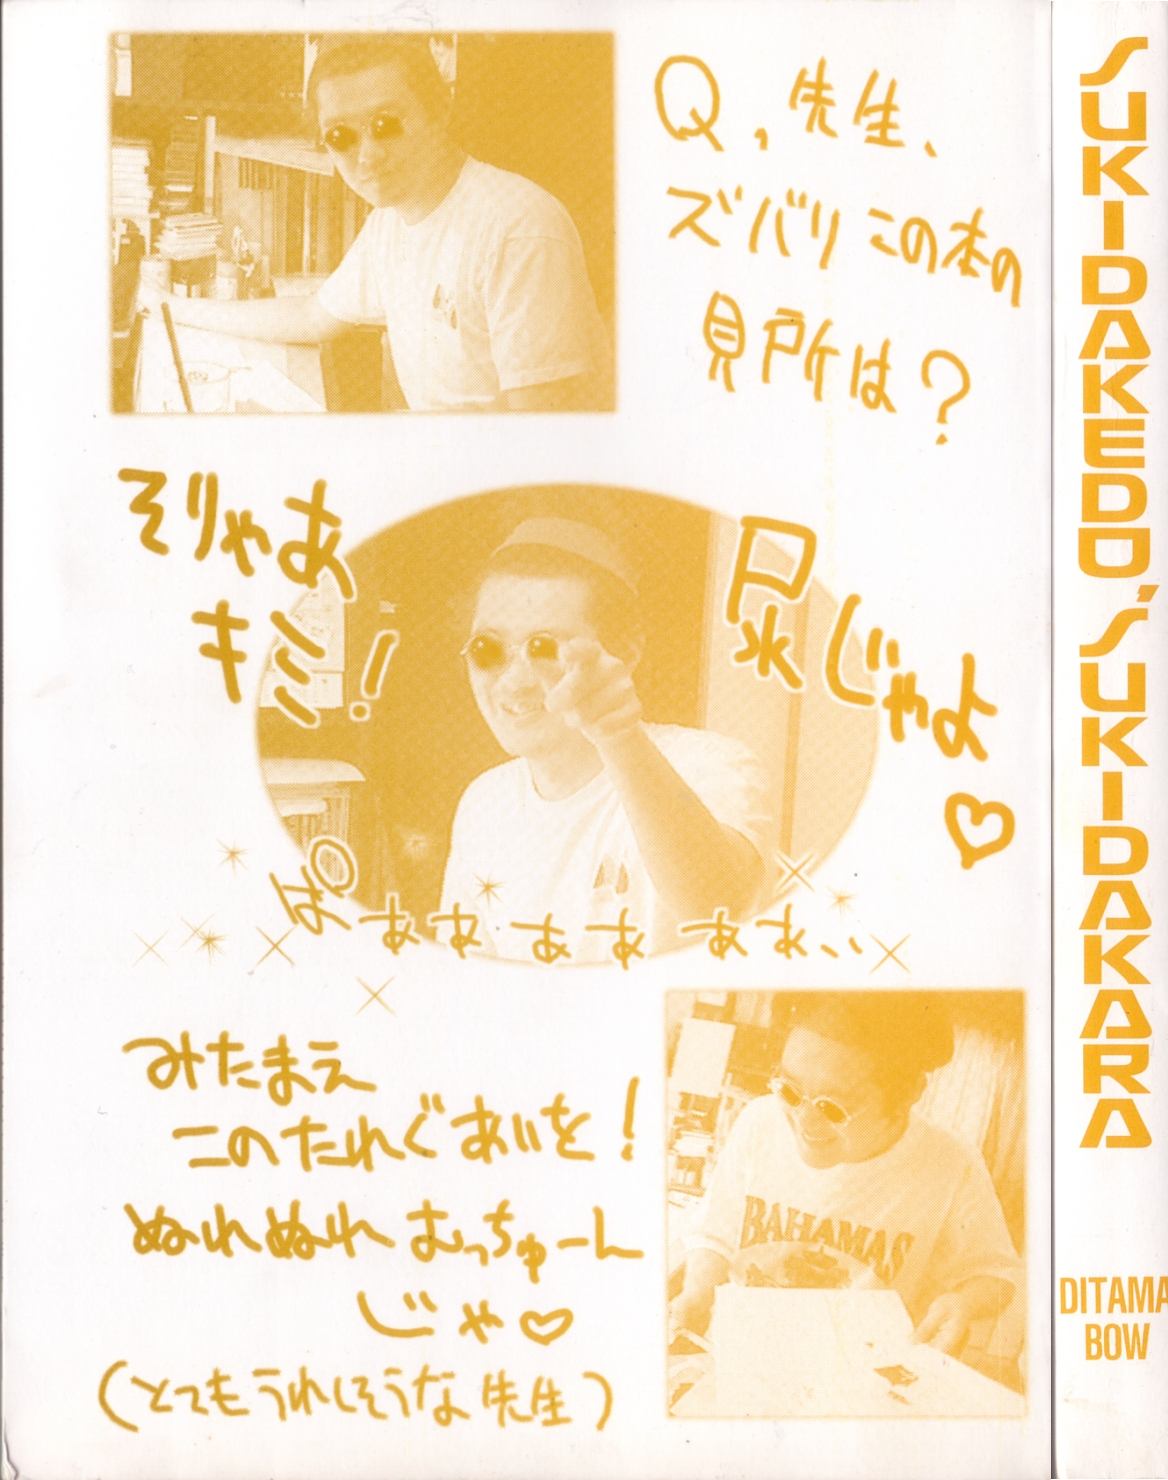 Q,先生、
ズバリこの本の
見所は?
そりゃあ
キミ!
尿じゃよ♡
ぱぁぁぁぁぁぁ、、
みたまえ
このたれぐあいを!
ぬれぬれむっちゅーん
じゃ♡
(とてもうれしそうな先生)
BAHAMAS
SUKIDAKEDO,SUKIDAKARA
DITAMA
BOW